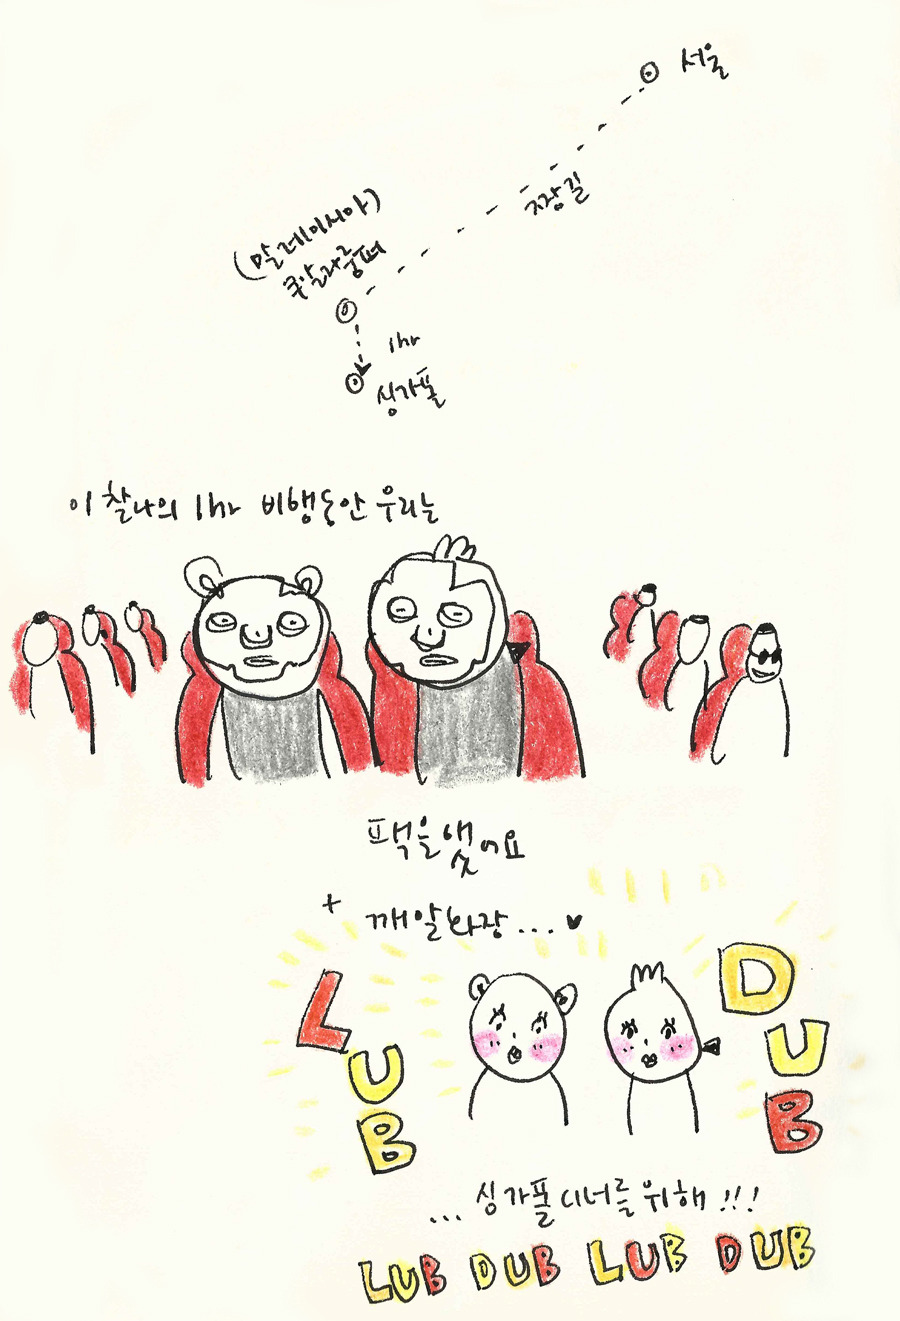 서울
지장길
(말레이시아)
쿠알라룸퍼
1hr
싱가폴
이 찰나의 1hr 비행동안 우리는
팩을했어요
+
깨알화장... ♥
LUB
DUB
...싱가폴디너를위해!!!
LUB DUB LUB DUB